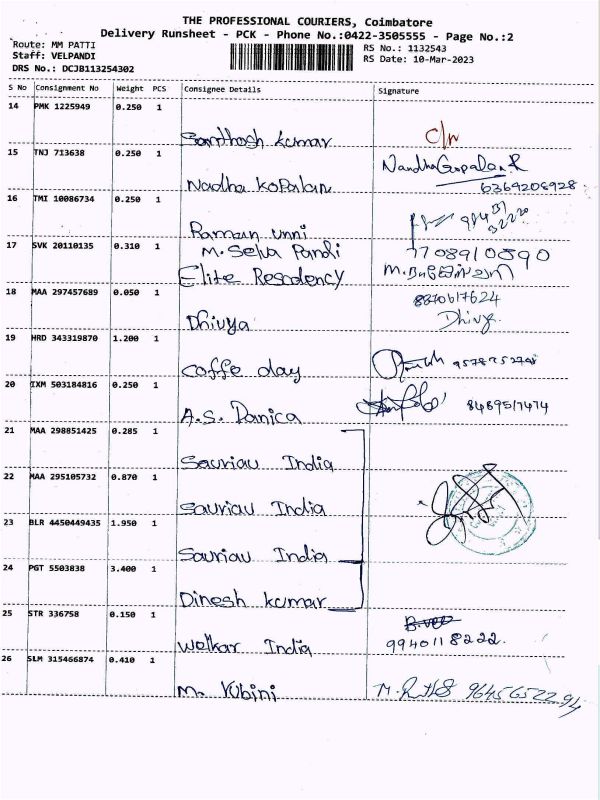 THE PROFESSIONAL COURIERS, Coimbatore
Delivery Runsheet - PCK - Phone No.:0422-3505555 - Page No.:2
Route: MM PATTI
Staff: VELPANDI
DRS No.: DCJB113254302
RS No.: 1132543
RS Date: 10-Mar-2023
S No Consignment No Weight PCS Consignee Details Signature
14 PMK 1225949 0.250 1
Santhosh kumar c/n
15 TNJ 713638 0.250 1
Nadha kopalan NandhaGopalan.R
6369208928
16 TMI 10086734 0.250 1
Raman unni
17 SVK 20110135 0.310 1
M. Selva Pandi 7708910890
Elite Resodency
18 MAA 297457689 0.050 1
8870617624
Dhivya Dhivya
19 HRD 343319870 1.200 1
coffe day
20 IXM 503184816 0.250 1
A.S. Danica 8489517474
21 MAA 298851425 0.285 1
Sauriau India
22 MAA 295105732 0.870 1
Sauriau India
23 BLR 4450449435 1.950 1
Sauriau India
24 PGT 5503838 3.400 1
Dinesh kumar
25 STR 336758 0.150 1
welkar India 9940118222.
26 SLM 315466874 0.410 1
M. Kubini 9645652294